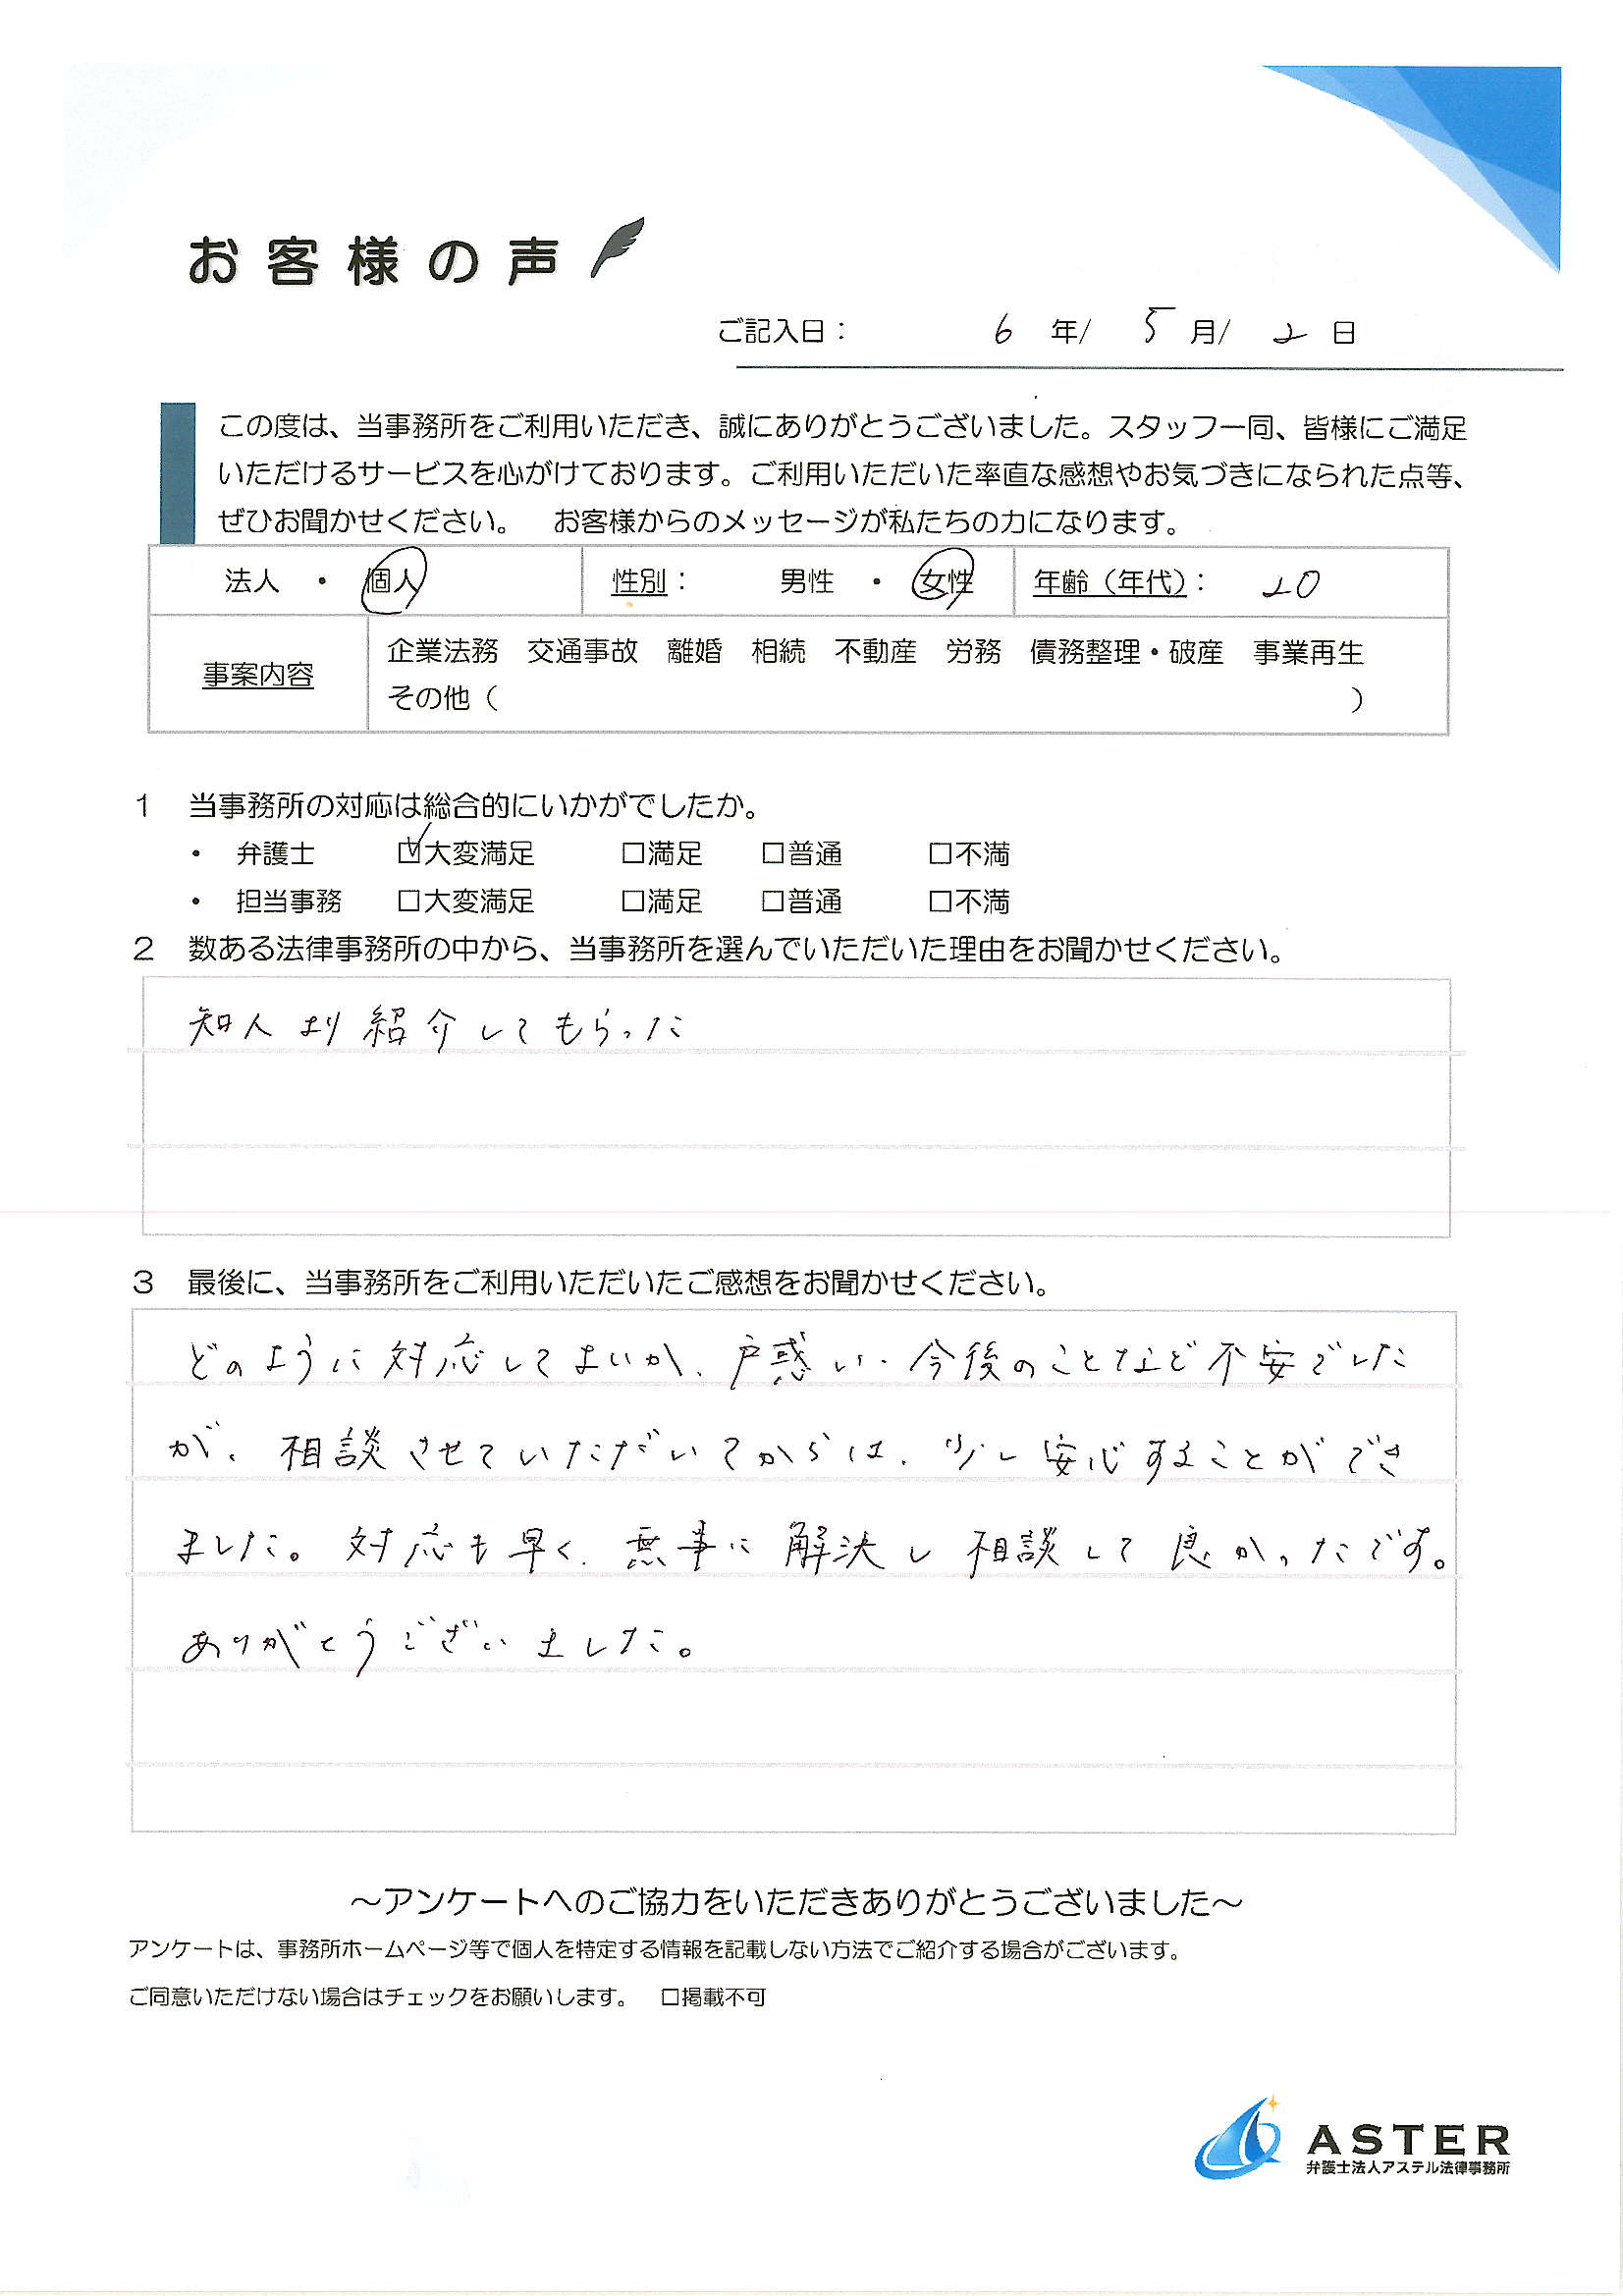 お客様の声
ご記入日： 6 年/ 5 月/ 2 日
この度は、当事務所をご利用いただき、誠にありがとうございました。スタッフ一同、皆様にご満足
いただけるサービスを心がけております。ご利用いただいた率直な感想やお気づきになられた点等、
ぜひお聞かせください。 お客様からのメッセージが私たちの力になります。
法人 ・ 個人 性別： 男性 ・ 女性 年齢（年代）： 20
事案内容
企業法務 交通事故 離婚 相続 不動産 労務 債務整理・破産 事業再生
その他（ ）
1 当事務所の対応は総合的にいかがでしたか。
・ 弁護士 ☑大変満足 □満足 □普通 □不満
・ 担当事務 □大変満足 □満足 □普通 □不満
2 数ある法律事務所の中から、当事務所を選んでいただいた理由をお聞かせください。
知人より紹介してもらった
3 最後に、当事務所をご利用いただいたご感想をお聞かせください。
どのように対応してよいか、戸惑い、今後のことなど不安でした
が、相談させていただいてからは、少し安心することができ
ました。対応も早く、無事に解決し相談して良かったです。
ありがとうございました。
～アンケートへのご協力をいただきありがとうございました～
アンケートは、事務所ホームページ等で個人を特定する情報を記載しない方法でご紹介する場合がございます。
ご同意いただけない場合はチェックをお願いします。 □掲載不可
ASTER
弁護士法人アステル法律事務所